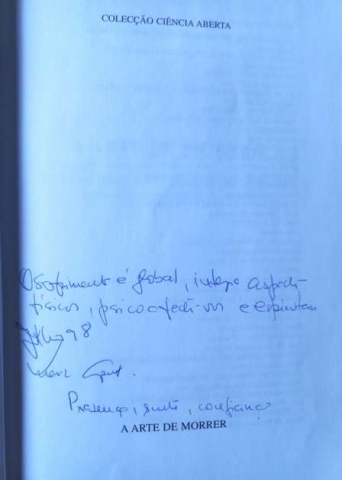 COLECÇÃO CIÊNCIA ABERTA
O sofrimento é global, integra aspectos
físicos, psicoafectivos e espirituais
98
Presença, confiança
A ARTE DE MORRER